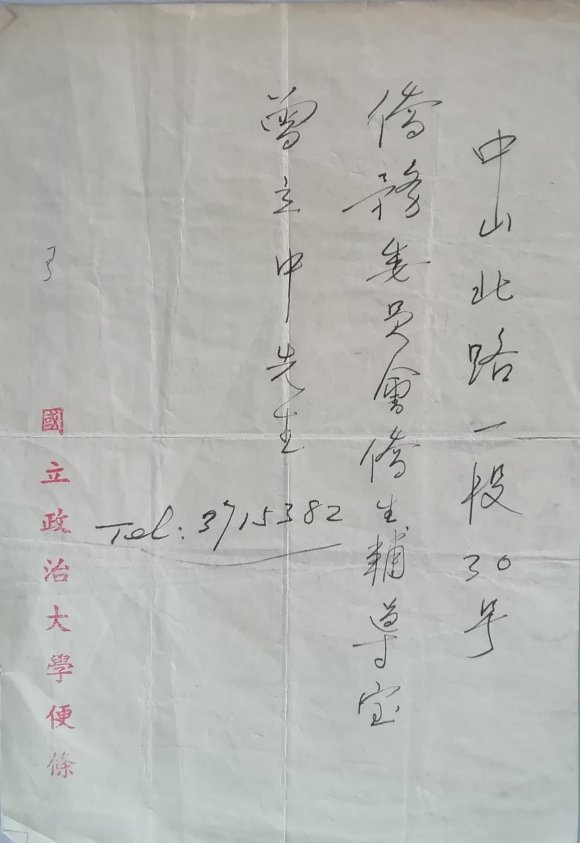 中山北路一段30号
僑務委員會僑生輔導室
曾立中先生
Tel: 3715382
國立政治大學便條